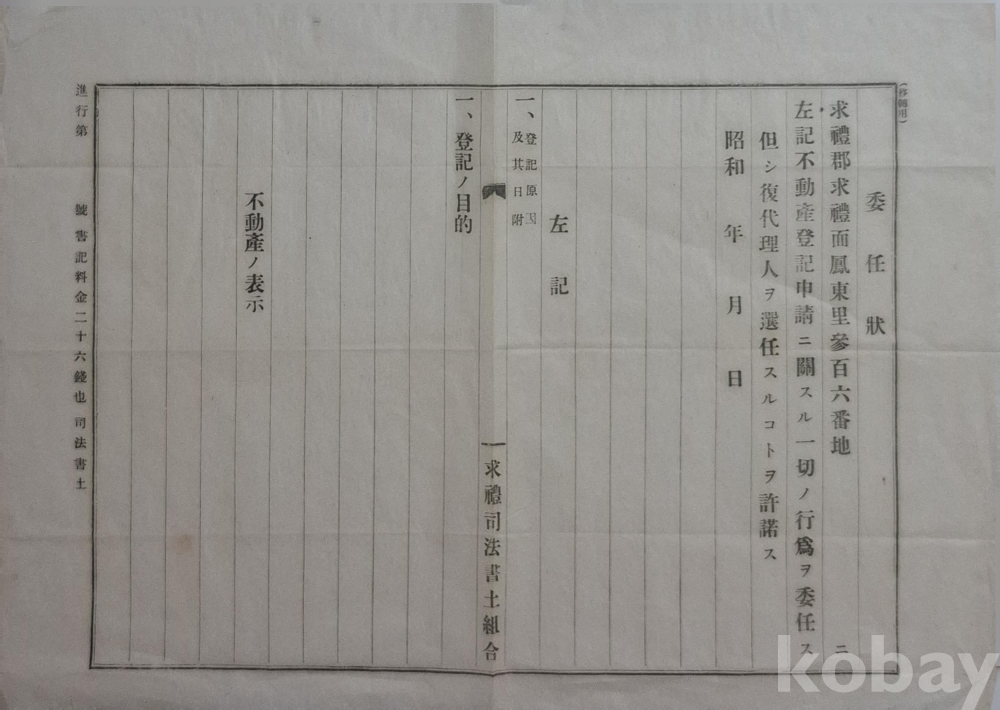 (移轉用)
委任狀
求禮郡求禮面鳳東里參百六番地 ニ
左記不動產登記申請ニ關スル一切ノ行爲ヲ委任ス
但シ復代理人ヲ選任スルコトヲ許諾ス
昭和 年 月 日
左記
一、登記原因
及其日附
求禮司法書士組合
一、登記ノ目的
不動產ノ表示
進行第 號 書記料金二十六錢也 司法書士
kobay